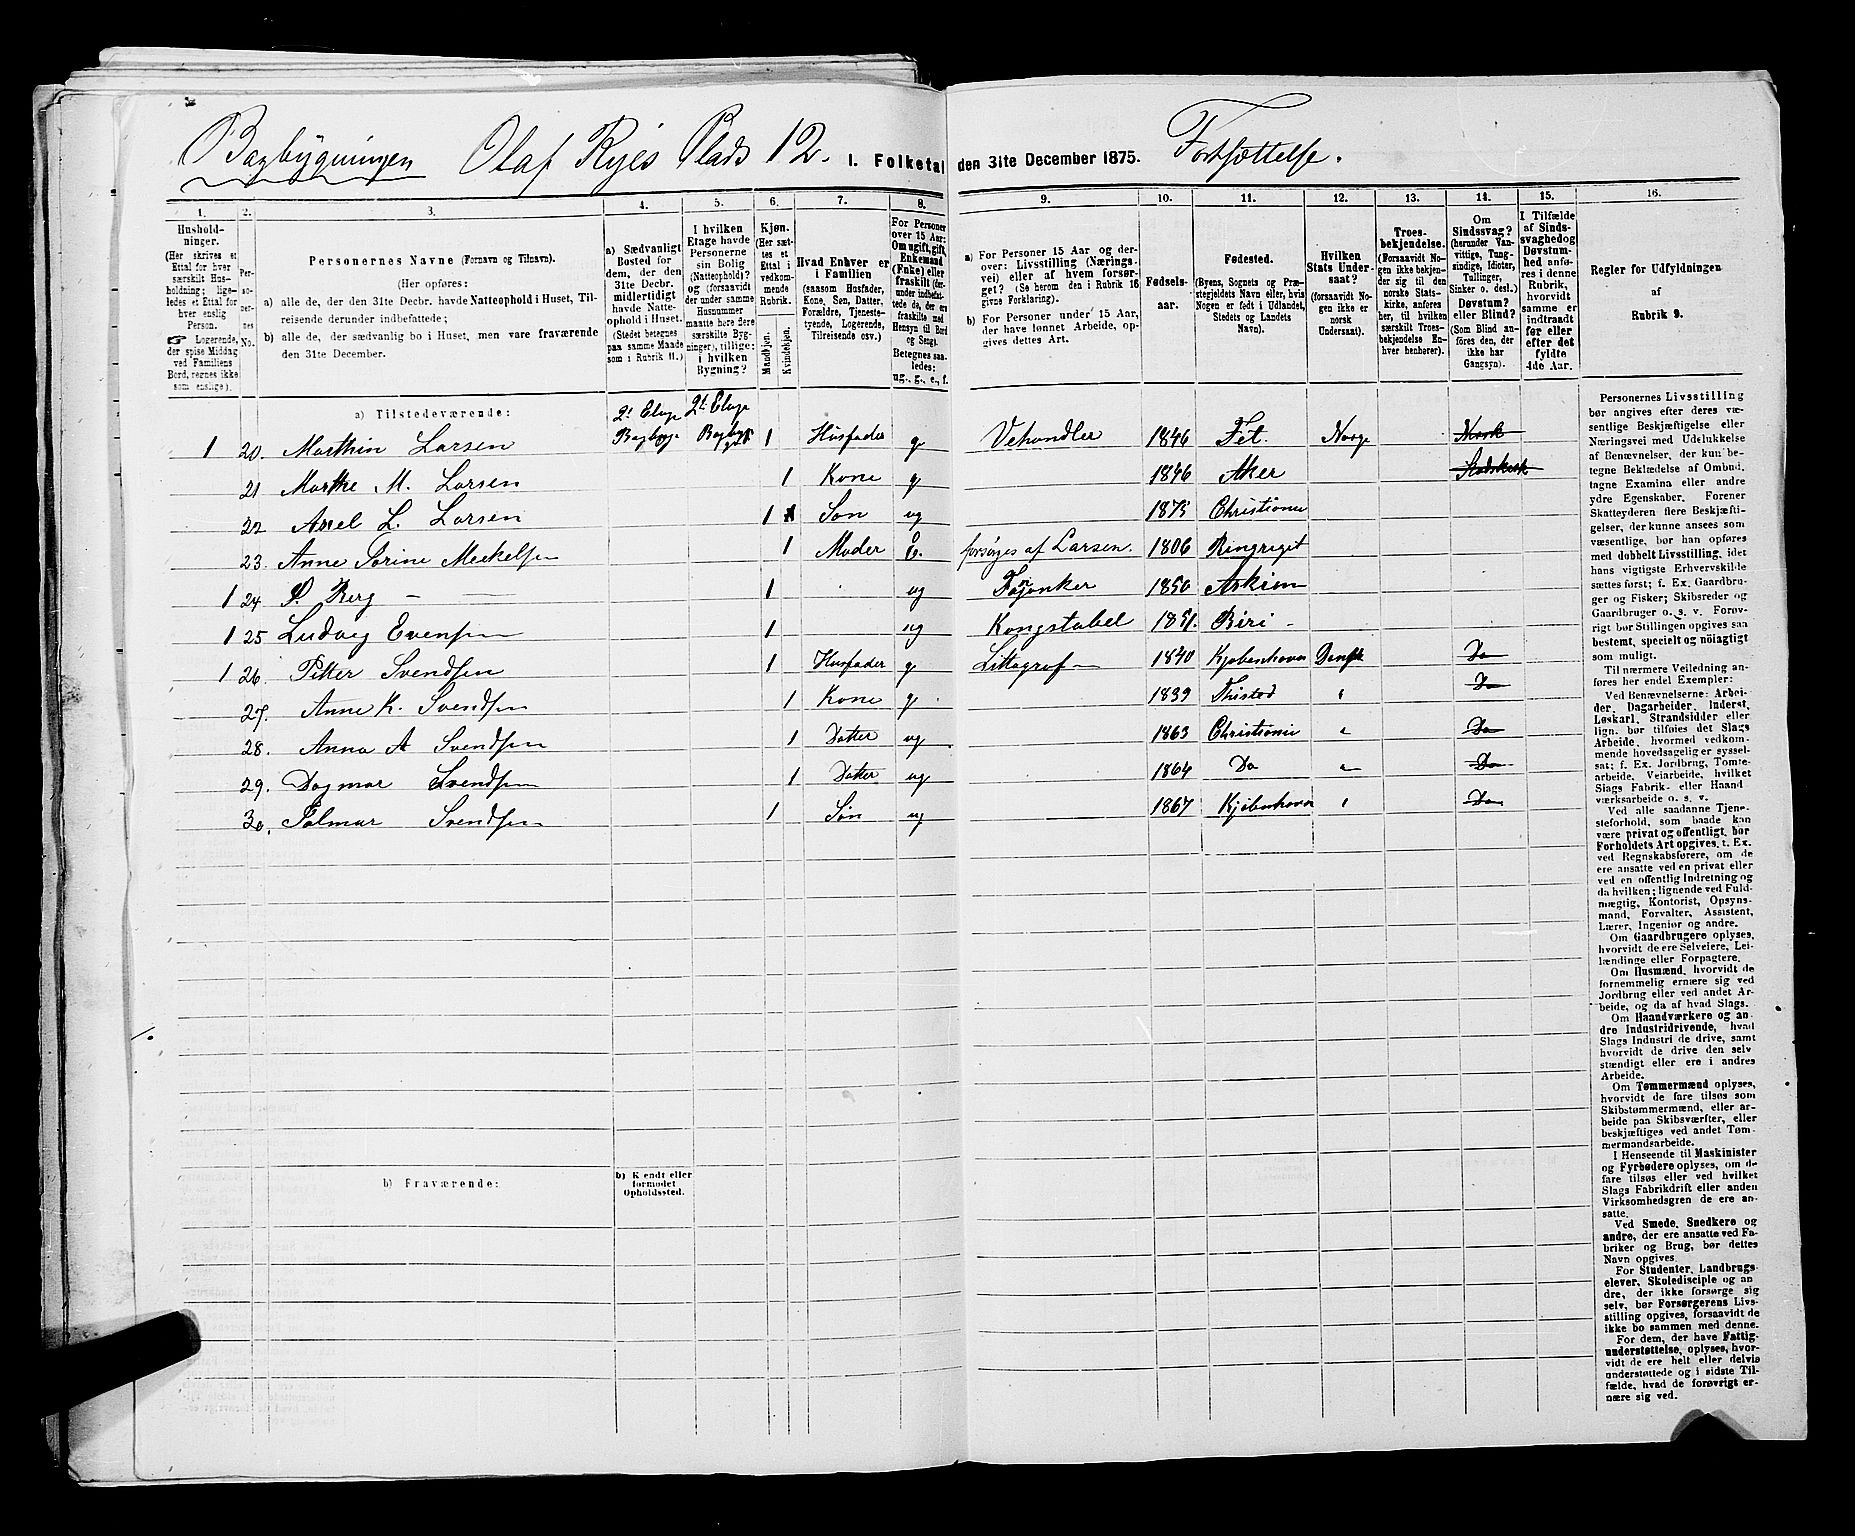 Bagbygningen Olaf Ryes Plads 12. I. Folketal den 31te December 1875. Fortsættelse.
1. 2. 3. 4. 5. 6. 7. 8. 9. 10. 11. 12. 13. 14. 15. 16.
Hushold-
ninger.
(Her skrives et
Ettal for hver
særskilt Hus-
holdning; lige-
ledes et Ettal for
hver enslig
Person.
☞ Logerende,
der spise Middag
ved Familiens
Bord, regnes ikke
som enslige).
Per-
so-
ner-
nes
No.
Personernes Navne (Fornavn og Tilnavn).
(Her opføres:
a) alle de, der den 31te Decbr. havde Natteophold i Huset, Til-
reisende derunder indbefattede;
b) alle de, der sædvanlig bo i Huset, men vare fraværende
den 31te December.
a) Sædvanligt
Bosted for
dem, der den
31te Decbr.
midlertidigt
havde Natte-
ophold i Huset.
(Stedet betegnes
paa samme Maade
som i Rubrik 11.)
I hvilken
Etage havde
Personerne
sin Bolig
(Natteophold)?
og (forsaavidt
der under samme
Husnummer
maatte høre flere
særskilte Byg-
ninger), tillige:
i hvilken
Bygning?
Kjøn.
(Her sæt-
tes et
Ettal i
vedkom-
mende
Rubrik.
Mandkjøn.
Kvindekjøn.
Hvad Enhver er
i Familien
(saasom Husfader,
Kone, Søn, Datter,
Forældre, Tjeneste-
tyende, Logerende,
Tilreisende osv.)
For Personer
over 15 Aar:
Om ugift, gift,
Enkemand
(Enke) eller
fraskilt (der-
under indbefat-
tede de, der ere
fraskilte med
Hensyn til Bord
og Seng).
Betegnes saa-
ledes:
ug., g., e., f.
a) For Personer 15 Aar og der-
over: Livsstilling (Nærings-
vei) eller af hvem forsør-
get? (Se herom den i Rubrik 16
givne Forklaring).
b) For Personer under 15 Aar,
der have lønnet Arbeide, op-
gives dettes Art.
Fødsels-
aar.
Fødested.
(Byens, Sognets og Præ-
stegjeldets Navn eller, hvis
Nogen er født i Udlandet,
Stedets og Landets
Navn).
Hvilken
Stats Under-
saat?
(forsaavidt No-
gen ikke er
norsk
Undersaat).
Troes-
bekjendelse.
(Forsaavidt No-
gen ikke bekjen-
der sig til den
norske Stats-
kirke, anføres
her, til hvilken
særskilt Troes-
bekjendelse En-
hver henhører).
Om
Sindssvag?
(herunder Van-
vittige, Tung-
sindige, Idioter,
Tullinger,
Sinker o. desl.)
Døvstum?
eller Blind?
(Som Blind an-
føres den, der
ikke har
Gangsyn).
I Tilfælde
af Sinds-
svaghed og
Døvstum-
hed anfø-
res i denne
Rubrik,
hvorvidt
samme er
indtraadt
før eller
efter det
fyldte
4de Aar.
Regler for Udfyldningen
af
Rubrik 9.
a) Tilstedeværende:
1 20. Marthin Larsen 2t Etage Bagbyg. 2t Etage Bagbyg. 1 Husfader g. Vehandler 1846 Fet. Norge Norsk
21 Marthe M. Larsen 1 Kone g. 1846 Aker Statskirk
22 Axel L. Larsen 1 Søn ug 1873 Christiania
23. Anne Torine Meekelsen 1 Moder e. forsørges af Larsen. 1806 Ringriget
1 24 P. Berg — 1 ug 1850 Askim
1 25 Ludvig Evensen 1 ug Kongstabel 1851. Biri -
1 26. Peter Svendsen 1 Husfader g. Littograf — 1840 Kjøbenhavn Dansk Do
27. Anne K. Svendsen 1 Kone g. 1839 Thisted " Do
28. Anna A Svendsen 1 Datter ug 1863 Christiania " Do
29. Dagmar Svendsen 1 Datter ug. 1864 Do " Do
30. Svendsen 1 Søn ug 1867 Kjøbenhavn " Do
b) Fraværende:
b) Kjendt eller
formodet
Opholdssted.
Personernes Livsstilling
bør angives efter deres væ-
sentlige Beskjæftigelse eller
Næringsvei med Udelukkelse
af Benævnelser, der kun be-
tegne Beklædelse af Ombud,
tagne Examina eller andre
ydre Egenskaber. Forener
Skatteyderen flere Beskjæfti-
gelser, der kunne ansees som
væsentlige, bør han opføres
med dobbelt Livsstilling, idet
hans vigtigste Erhvervskilde
sættes først; f. Ex. Gaardbru-
ger og Fisker; Skibsreder og
Gaardbruger o. s. v. Forøv-
rigt bør Stillingen opgives saa
bestemt, specielt og nøiagtigt
som muligt.
Til nærmere Veiledning an-
føres her endel Exempler:
Ved Benævnelserne: Arbei-
der, Dagarbeider, Inderst,
Løskarl, Strandsidder eller
lign. bør tilføies det Slags
Arbeide, hvormed vedkom-
mende hovedsagelig er syssel-
sat; f. Ex. Jordbrug, Tomte-
arbeide, Veiarbeide, hvilket
Slags Fabrik- eller Haand-
værksarbeide o. s. v.
Ved alle saadanne Tjene-
steforhold, som baade kan
være privat og offentligt, bør
Forholdets Art opgives, t. Ex.
ved Regnskabsførere, om de
ere ansatte ved en privat eller
ved en offentlig Indretning og
da hvilken; lignende ved Fuld-
mægtig, Kontorist, Opsyns-
mand, Forvalter, Assistent,
Lærer, Ingeniør og andre.
Om Gaardbrugere oplyses,
hvorvidt de ere Selveiere, Lei-
lændinge eller Forpagtere.
Om Husmænd, hvorvidt de
fornemmelig ernære sig ved
Jordbrug eller ved andet Ar-
beide, og da af hvad Slags.
Om Haandværkere og an-
dre Industridrivende, hvad
Slags Industri de drive, samt
hvorvidt de drive den selv-
stændigt eller ere i andres
Arbeide.
Om Tømmermænd oplyses,
hvorvidt de fare tilsøs som
Skibstømmermænd, eller ar-
beide paa Skibsværfter, eller
beskjæftiges ved andet Tøm-
mermandsarbeide.
I Henseende til Maskinister
og Fyrbødere oplyses, om de
fare tilsøs eller ved hvilket
Slags Fabrikdrift eller anden
Virksomhedsgren de ere an-
satte.
Ved Smede, Snedkere og
andre, der ere ansatte ved Fa-
briker og Brug, bør dettes
Navn opgives.
For Studenter, Landbrugs-
elever, Skoledisciple og an-
dre, der ikke forsørge sig
selv, bør Forsørgerens Livs-
stilling opgives, forsaavidt de
ikke bo sammen med denne.
For dem, der have Fattig-
understøttelse, oplyses, hvor-
vidt de ere helt eller delvis
understøttede og i sidste Til-
fælde, hvad de forøvrigt er-
nære sig ved.